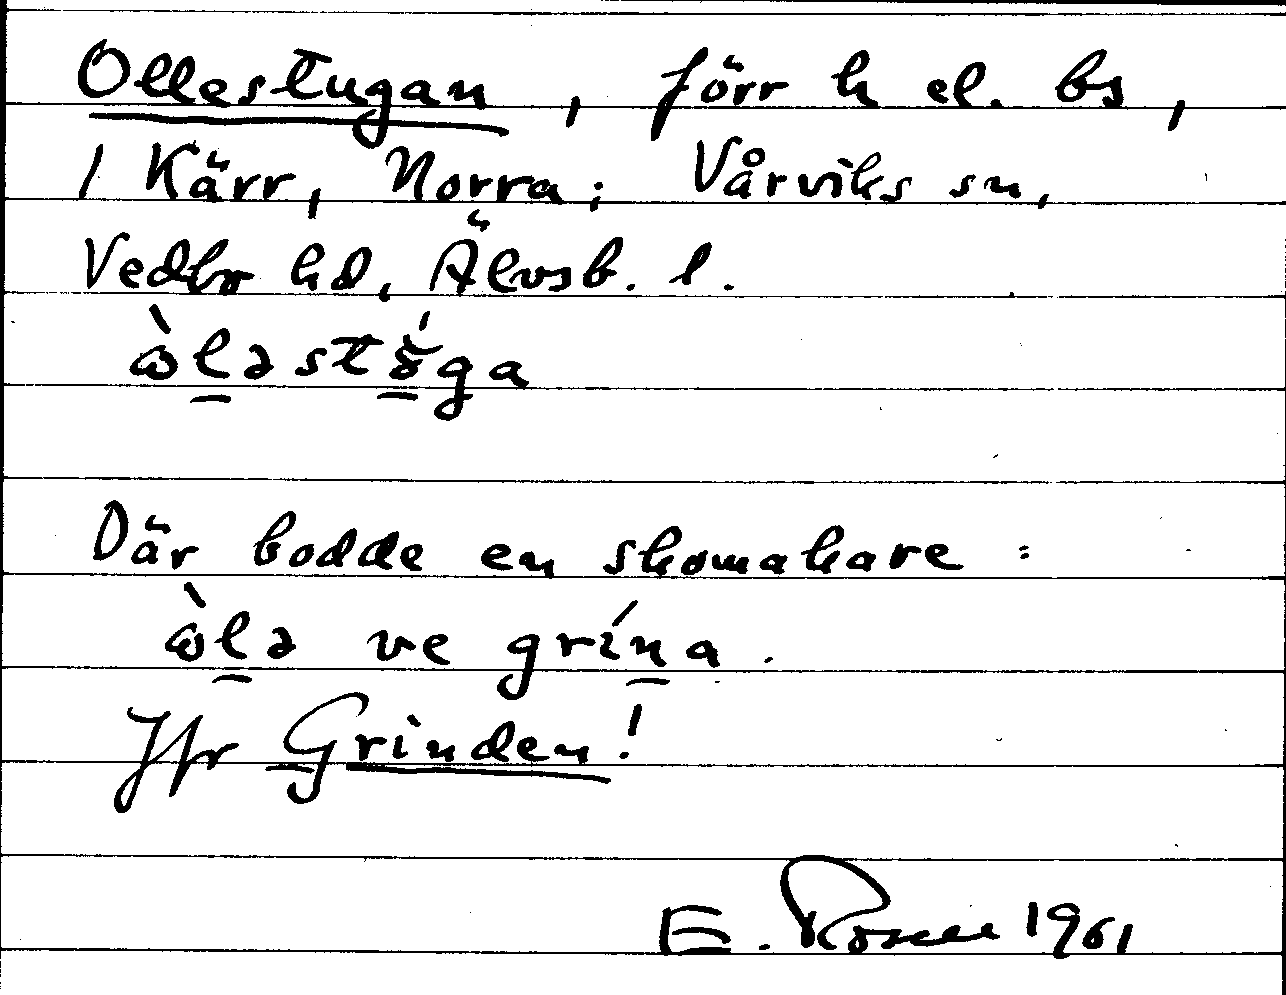 Ollestugan, förr h el. bs,
/ Kärr, Norra; Vårviks sn,
Vedbo hd, Älvsb. l.
ὼl̲əstɤ̲́ga
Där bodde en skomakare:
ὼl̲ə ve grín̲a.
Jfr Grinden!
E. Rosell 1961